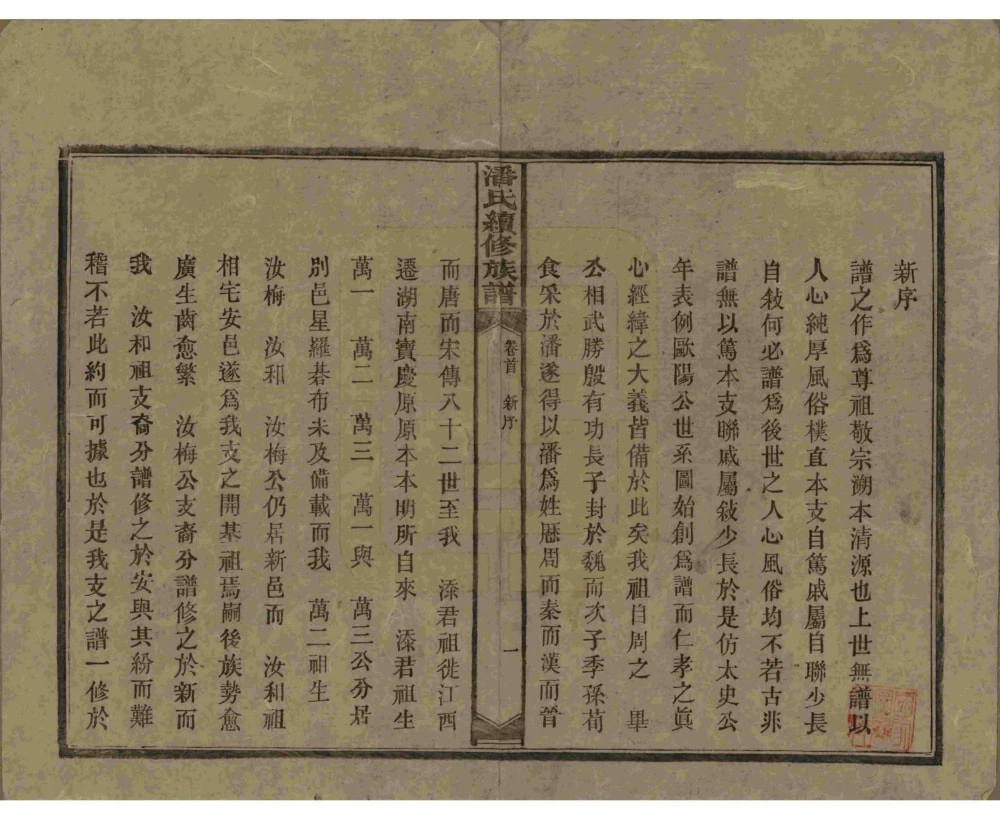 新序
譜之作爲尊祖敬宗溯本清源也上世無譜以
人心純厚風俗樸直本支自篤戚屬自聯少長
自敍何必譜爲後世之人心風俗均不若古非
譜無以篤本支聯戚屬敍少長於是仿太史公
年表例歐陽公世系圖始創爲譜而仁孝之眞
心經緯之大義皆備於此矣我祖自周之　畢
公相武勝殷有功長子封於魏而次子季孫荀
食采於潘遂得以潘爲姓歷周而秦而漢而晉
潘氏續修族譜　卷首　新序　一
而唐而宋傳八十二世至我　添君祖徙江西
遷湖南寶慶原原本本明所自來　添君祖生
萬一　萬二　萬三　萬一與　萬三公分居
別邑星羅碁布未及備載而我　萬二祖生
汝梅　汝和　汝梅公仍居新邑而　汝和祖
相宅安邑遂爲我支之開基祖焉嗣後族勢愈
廣生齒愈繁　汝梅公支裔分譜修之於新而
我　汝和祖支裔分譜修之於安與其紛而難
稽不若此約而可據也於是我支之譜一修於